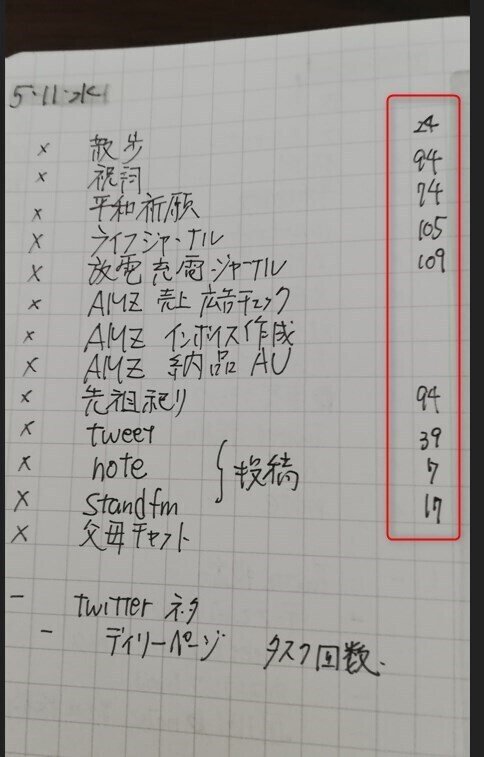 5.11.水
× 散歩 24
× 祝詞 94
× 平和祈願 74
× ライフジャーナル 105
× 放電充電ジャーナル 109
× AMZ 売上 広告チェック
× AMZ インボイス作成
× AMZ 納品 AU
× 先祖祀り 94
× tweet 39
× note } 投稿 7
× Standfm 17
× 父母チャット
- twitter ネタ
- デイリーページ タスク回数.